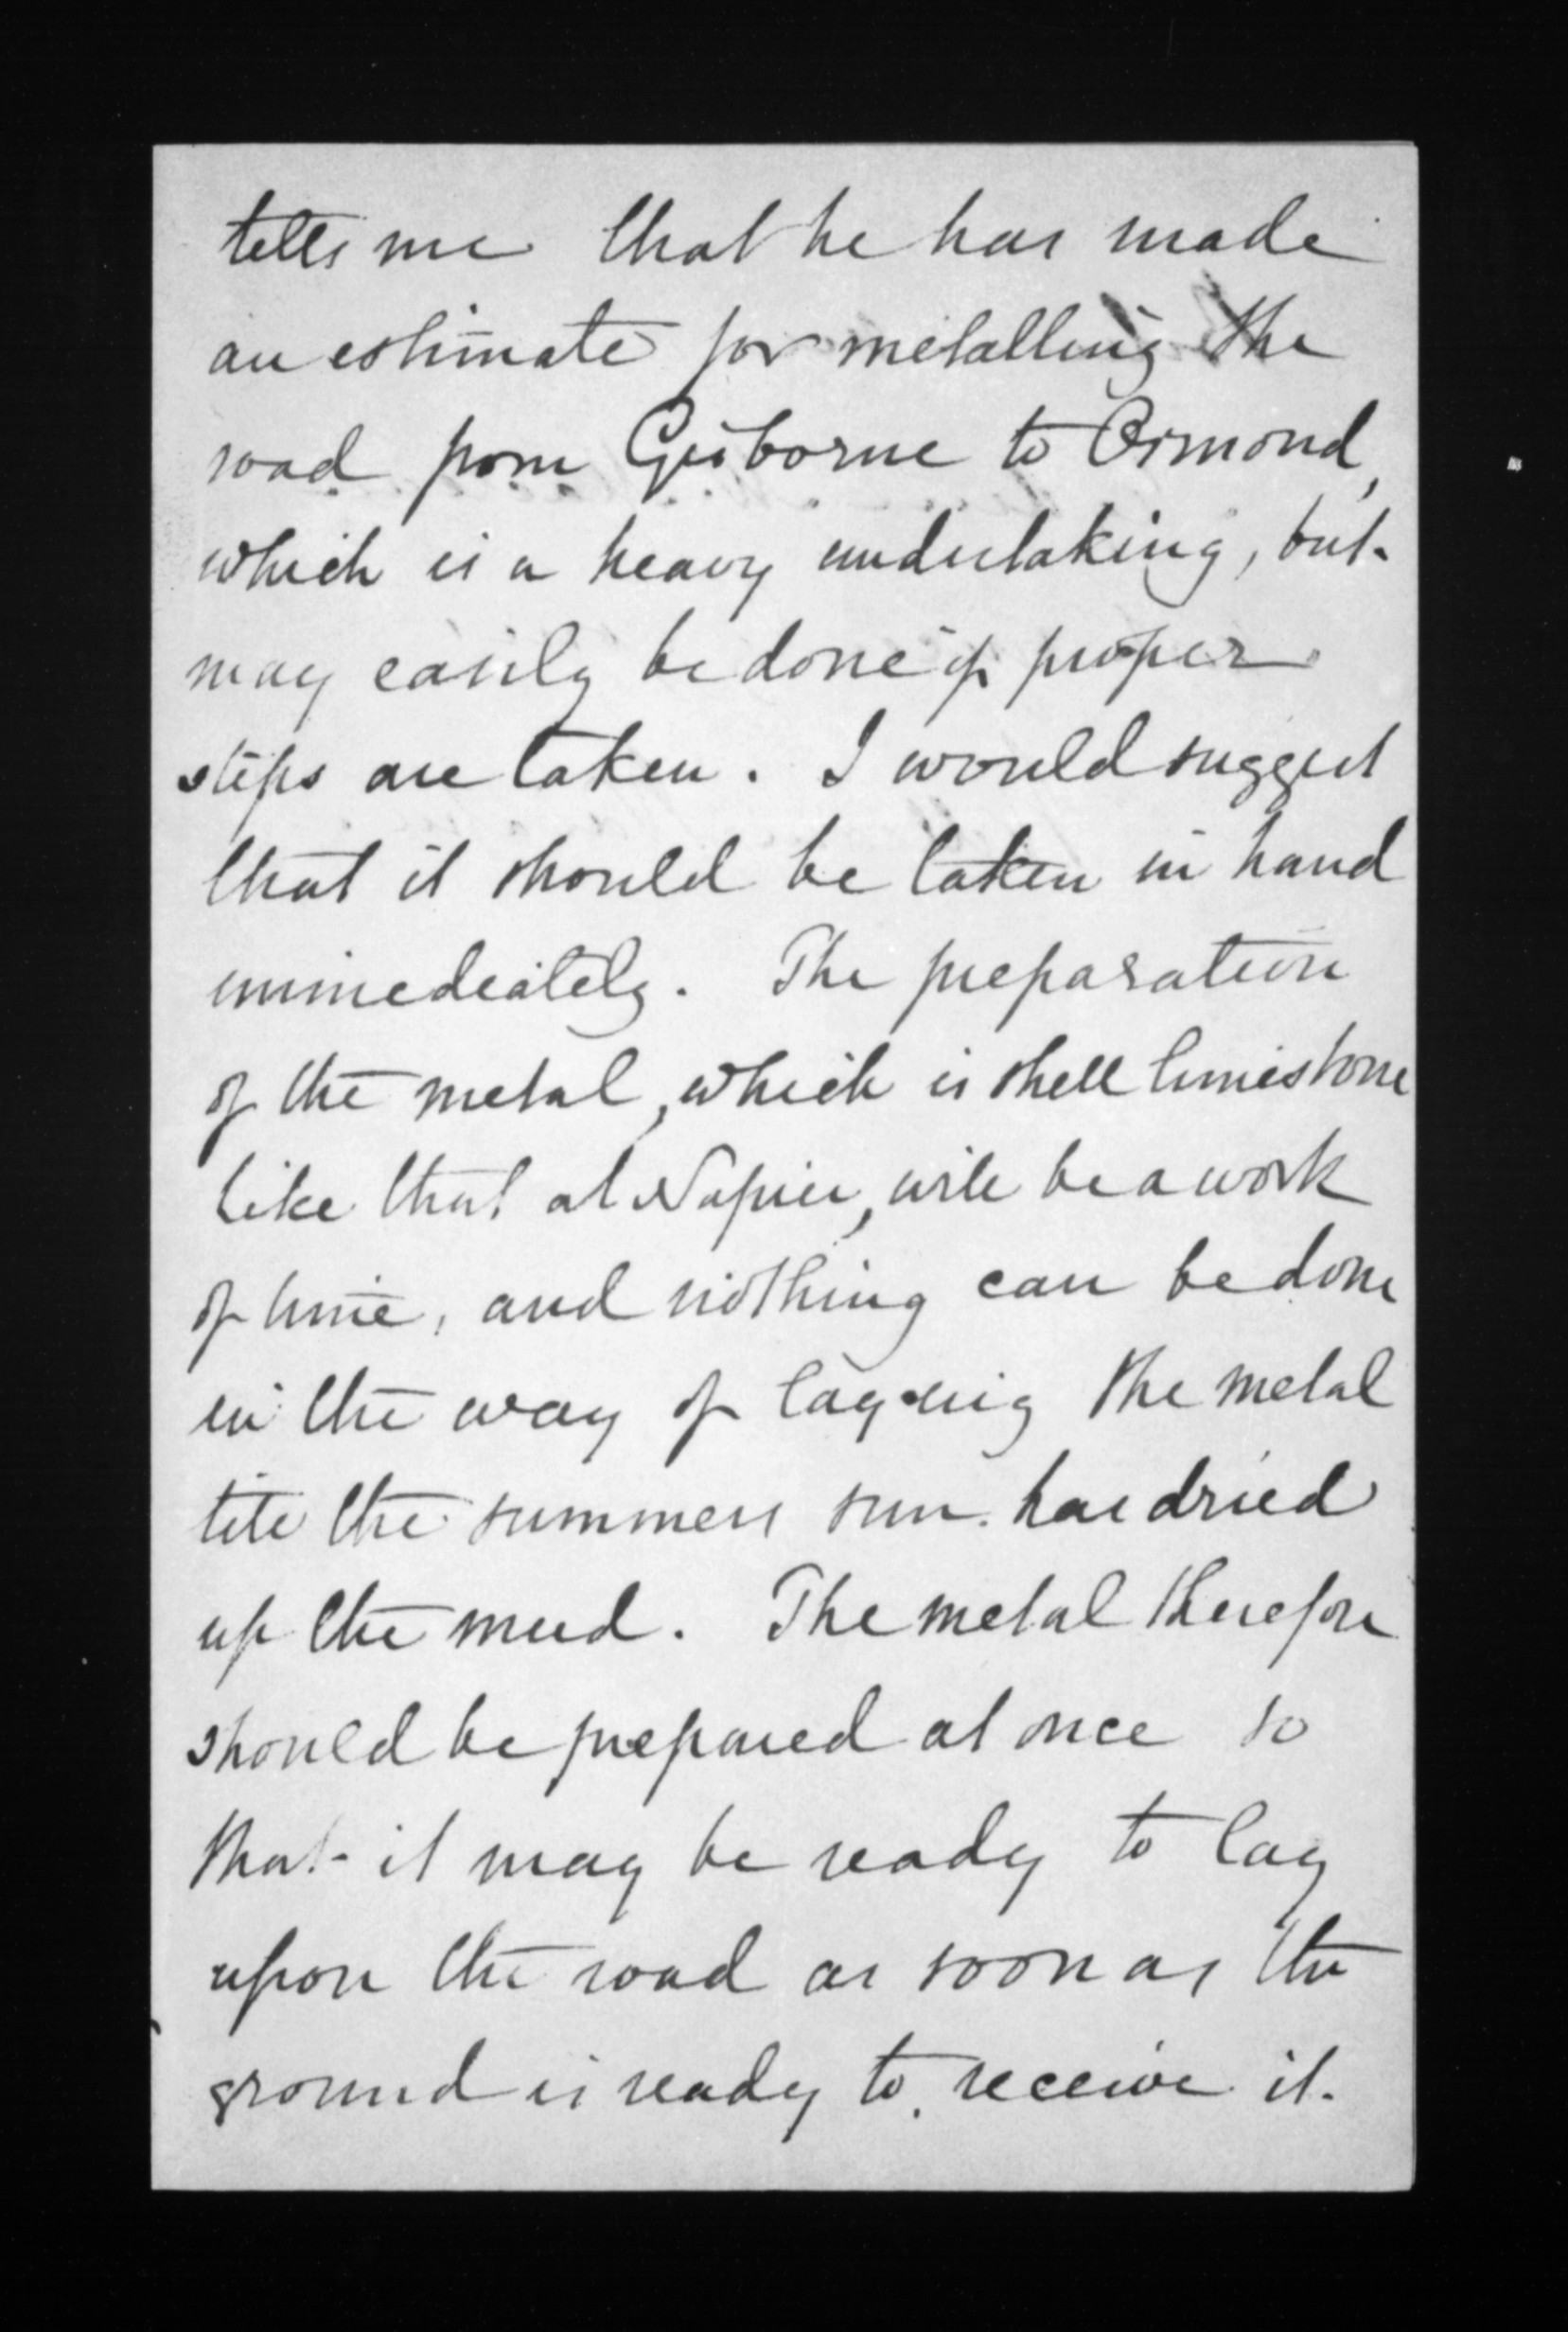 tells me that he has made
an estimate for metalling the
road from Gisborne to Ormond,
which is a heavy undertaking, but
may easily be done if proper
steps are taken. I would suggest
that it should be taken in hand
immediately. The preparation
of the metal, which is shell limestone
like that at Napier, will be a work
of time, and nothing can be done
in the way of laying the metal
till the summers sun has dried
up the mud. The metal therefore
should be prepared at once so
that it may be ready to lay
upon the road as soon as the
ground is ready to receive it.